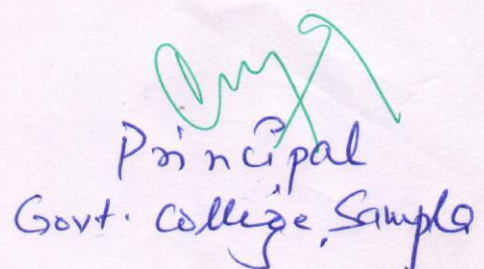 Principal
Govt. College, Sampla